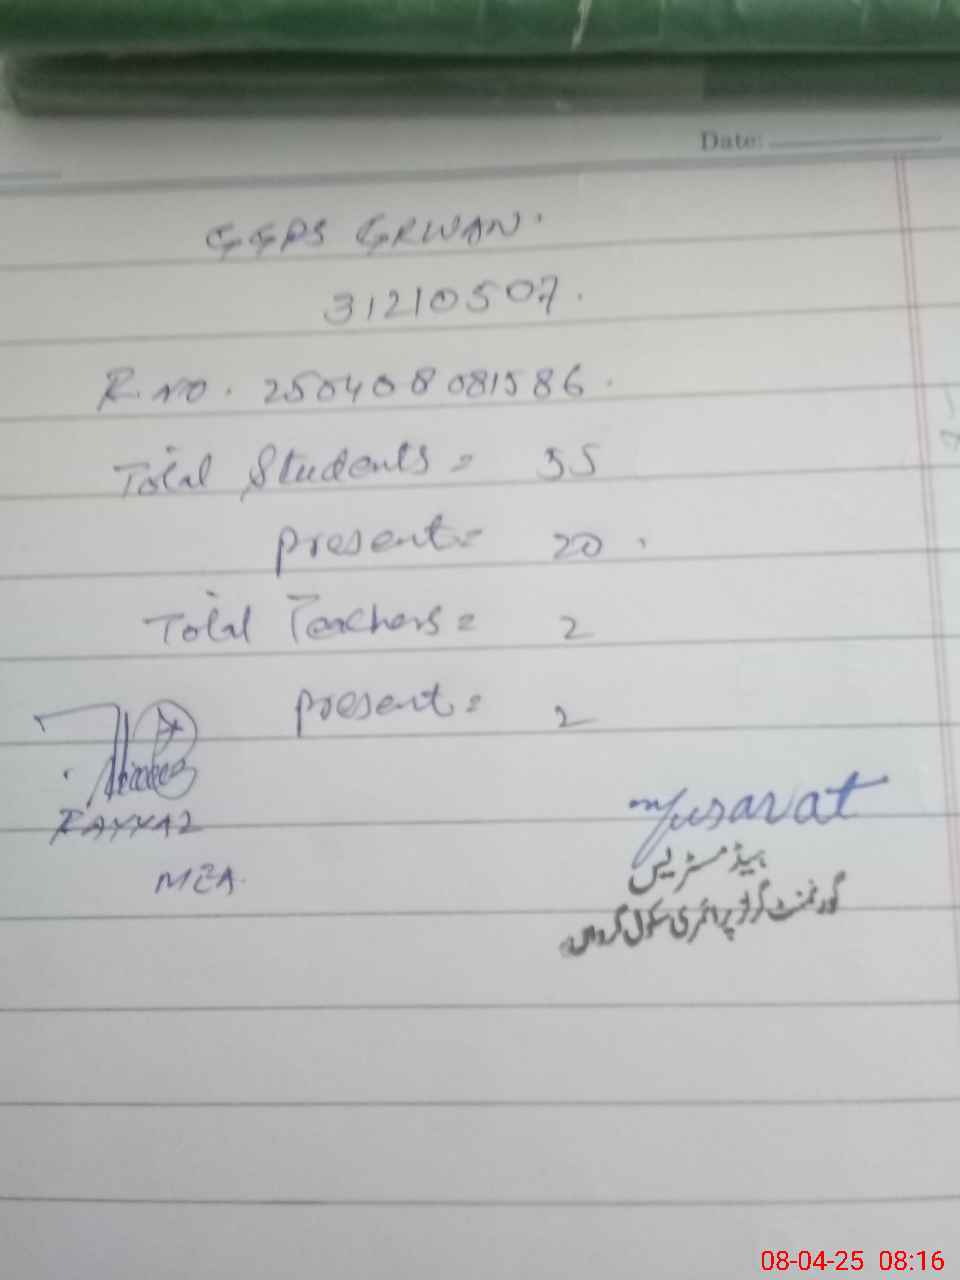 Date:
GGPS GRWAN.
31210507.
R.no. 250408081586.
Total Students = 35
present = 20.
Total Teachers = 2
present = 2
FAYYAZ
MEA.
Musarat
ہیڈ مسٹریس
گورنمنٹ گرلز پرائمری سکول گرواں
08-04-25 08:16